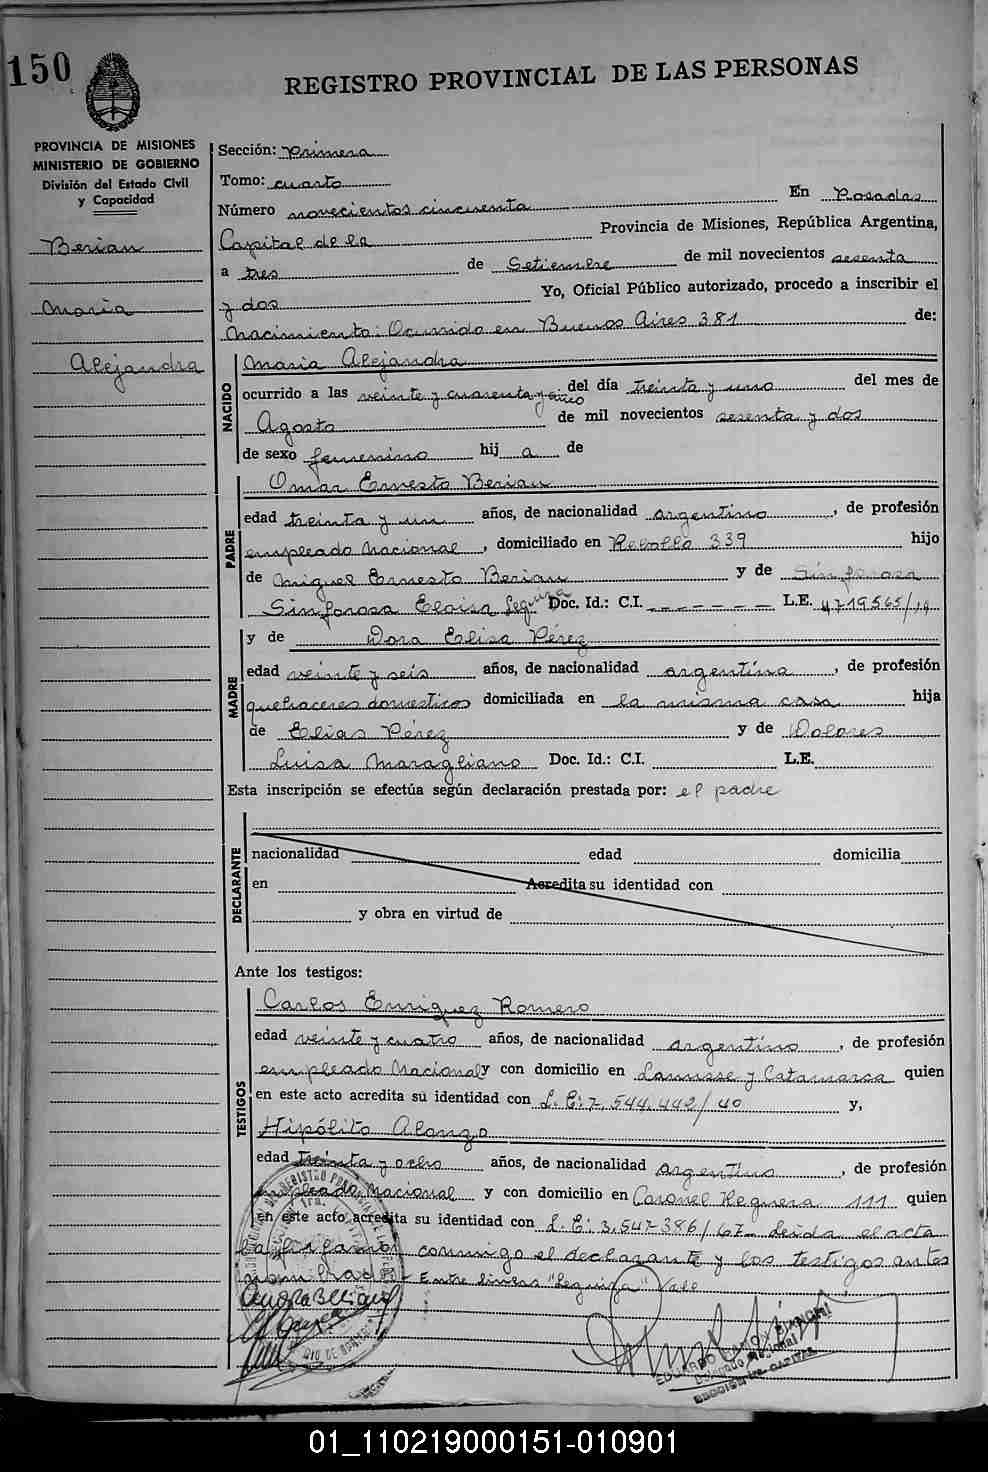 150
REGISTRO PROVINCIAL DE LAS PERSONAS
PROVINCIA DE MISIONES
MINISTERIO DE GOBIERNO
División del Estado Civil
y Capacidad
Berian
Maria
Alejandra
Sección: Primera
Tomo: cuarto
Número novecientos cincuenta En Posadas
Capital de la Provincia de Misiones, República Argentina,
a tres de Setiembre de mil novecientos sesenta
y dos Yo, Oficial Público autorizado, procedo a inscribir el
Nacimiento: Ocurrido en Buenos Aires 381 de:
NACIDO
Maria Alejandra
ocurrido a las veinte y cuarenta y cinco del día treinta y uno del mes de
Agosto de mil novecientos sesenta y dos
de sexo femenino hij a de
PADRE
Omar Ernesto Berian
edad treinta y un años, de nacionalidad argentino, de profesión
empleado Nacional, domiciliado en Rebollo 339 hijo
de Miguel Ernesto Berian y de Sinforosa
Sinforosa Eloisa Seguiza Doc. Id.: C.I. - - - - - - L.E. 4719565/14
MADRE
y de Dora Elisa Pérez
edad veinte y seis años, de nacionalidad argentina, de profesión
quehaceres domesticos domiciliada en la misma casa hija
de Elias Pérez y de Dolores
Luisa Maragliano Doc. Id.: C.I. L.E.
Esta inscripción se efectúa según declaración prestada por: el padre
DECLARANTE
nacionalidad edad domicilia
en Acredita su identidad con
y obra en virtud de
Ante los testigos:
TESTIGOS
Carlos Enriquez Romero
edad veinte y cuatro años, de nacionalidad argentino, de profesión
empleado Nacional y con domicilio en Lanusse y Catamarca quien
en este acto acredita su identidad con L.E: 7.544.442/40 y,
Hipólito Alonzo
edad treinta y ocho años, de nacionalidad argentino, de profesión
empleado Nacional y con domicilio en Coronel Reguera 111 quien
en este acto acredita su identidad con L.E: 3.547386/67- Leida el acta
la firfamor conmigo el declarante y los testigos antes
nombrados - Entre lineas "Seguiza" Vale
EDUARDO RAMON BIANCHI
Delegado Regional
SECCION 1ra. CAPITAL
01_110219000151-010901